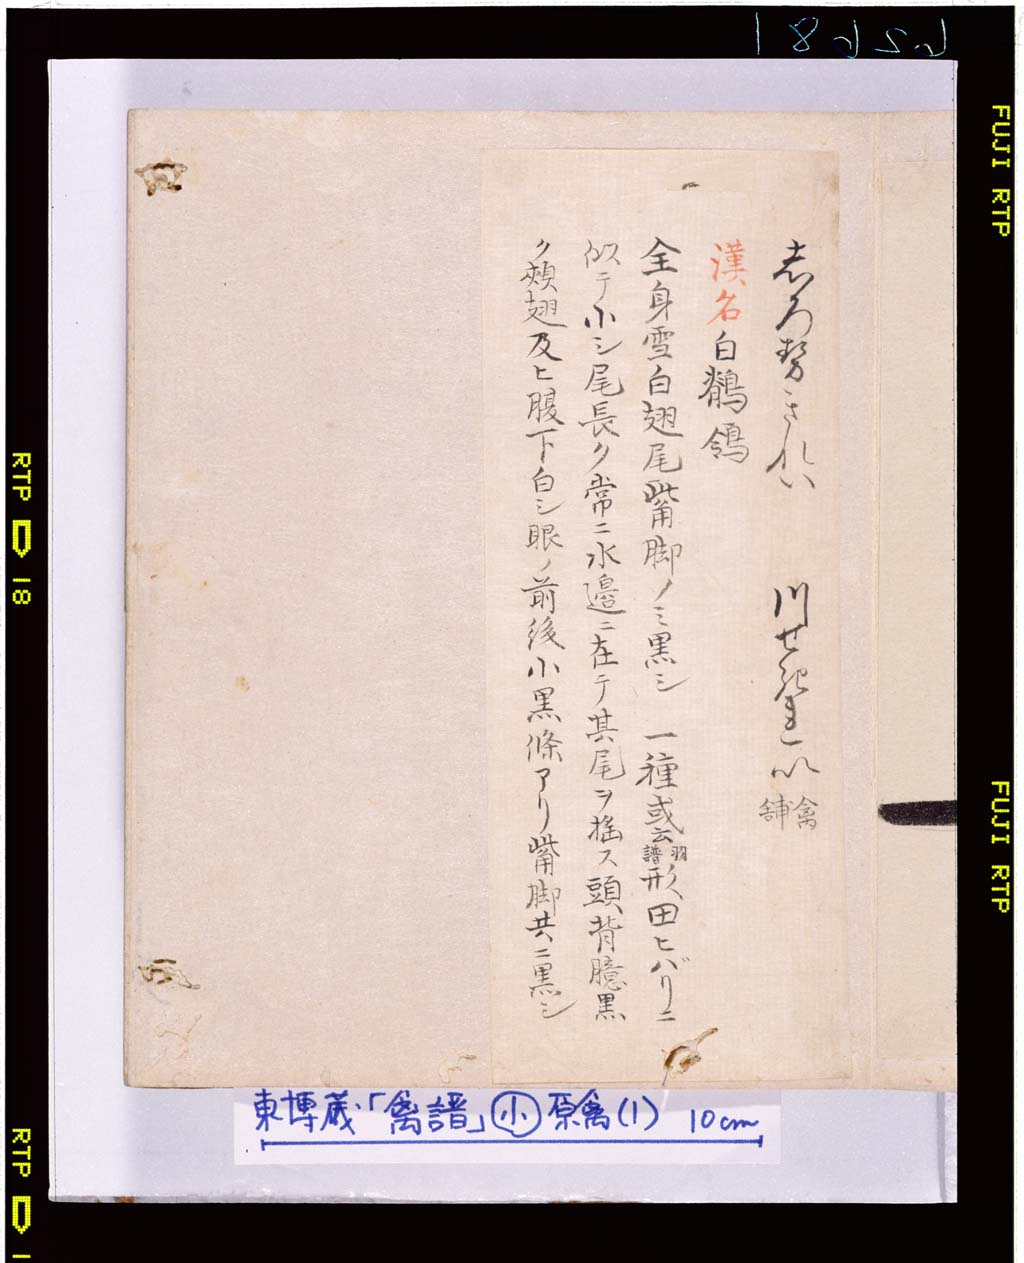 志ろ勢きれい 川せき連以 禽譜
漢名白鶺鴒
全身雪白翅尾觜脚ノミ黒シ 一種或云羽譜形田ヒバリニ
似テ小シ尾長ク常ニ水邉ニ在テ其尾ヲ揺ス頭背臆黒
ク頰翅及ヒ腹下白シ眼ノ前後小黒條アリ觜脚共ニ黒シ
東博蔵・「禽譜」小 原禽(1) 10cm
FUJI RTP
FUJI RTP
RTP 18
RTP